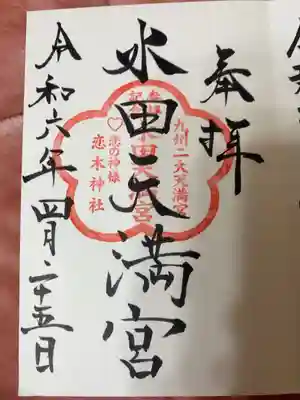 奉拝
九州二大天満宮
水田天満宮
恋の神様
恋木神社
令和六年四月二十五日